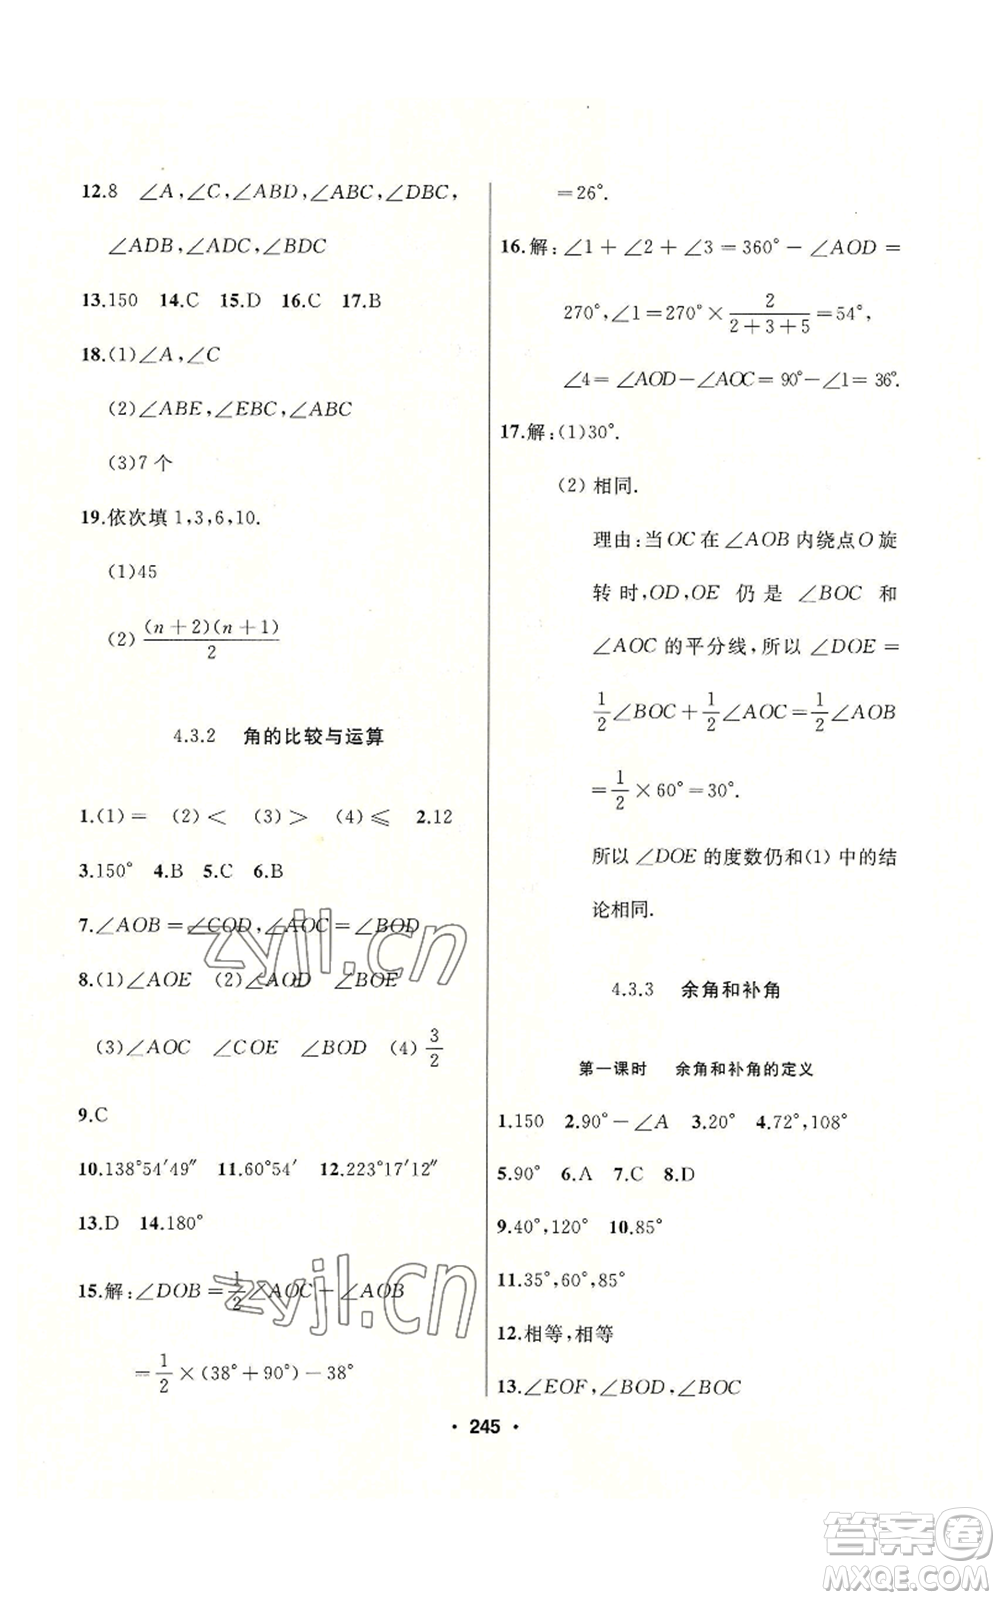 12.8 ∠A,∠C,∠ABD,∠ABC,∠DBC,
∠ADB,∠ADC,∠BDC
13.150 14.C 15.D 16.C 17.B
18.(1)∠A,∠C
(2)∠ABE,∠EBC,∠ABC
(3)7 个
19.依次填 1,3,6,10.
(1)45
(2) (n+2)(n+1)/2
4.3.2 角的比较与运算
1.(1)= (2)< (3)> (4)⩽ 2.12
3.150° 4.B 5.C 6.B
7.∠AOB=∠COD,∠AOC=∠BOD
8.(1)∠AOE (2)∠AOD ∠BOE
(3)∠AOC ∠COE ∠BOD (4) 3/2
9.C
10.138°54′49″ 11.60°54′ 12.223°17′12″
13.D 14.180°
15.解:∠DOB=1/2∠AOC-∠AOB
=1/2×(38°+90°)-38°
=26°.
16.解:∠1+∠2+∠3=360°-∠AOD=
270°,∠1=270°×2/(2+3+5)=54°,
∠4=∠AOD-∠AOC=90°-∠1=36°.
17.解:(1)30°.
(2) 相同.
理由:当OC在∠AOB内绕点O旋
转时,OD,OE 仍是 ∠BOC 和
∠AOC 的平分线,所以 ∠DOE=
1/2∠BOC+1/2∠AOC=1/2∠AOB
=1/2×60°=30°.
所以 ∠DOE 的度数仍和(1) 中的结
论相同.
4.3.3 余角和补角
第一课时 余角和补角的定义
1.150 2.90°-∠A 3.20° 4.72°,108°
5.90° 6.A 7.C 8.D
9.40°,120° 10.85°
11.35°,60°,85°
12.相等,相等
13.∠EOF,∠BOD,∠BOC
• 245 •
zyjl.cn
zyjl.cn
答案圈
MXQE.COM